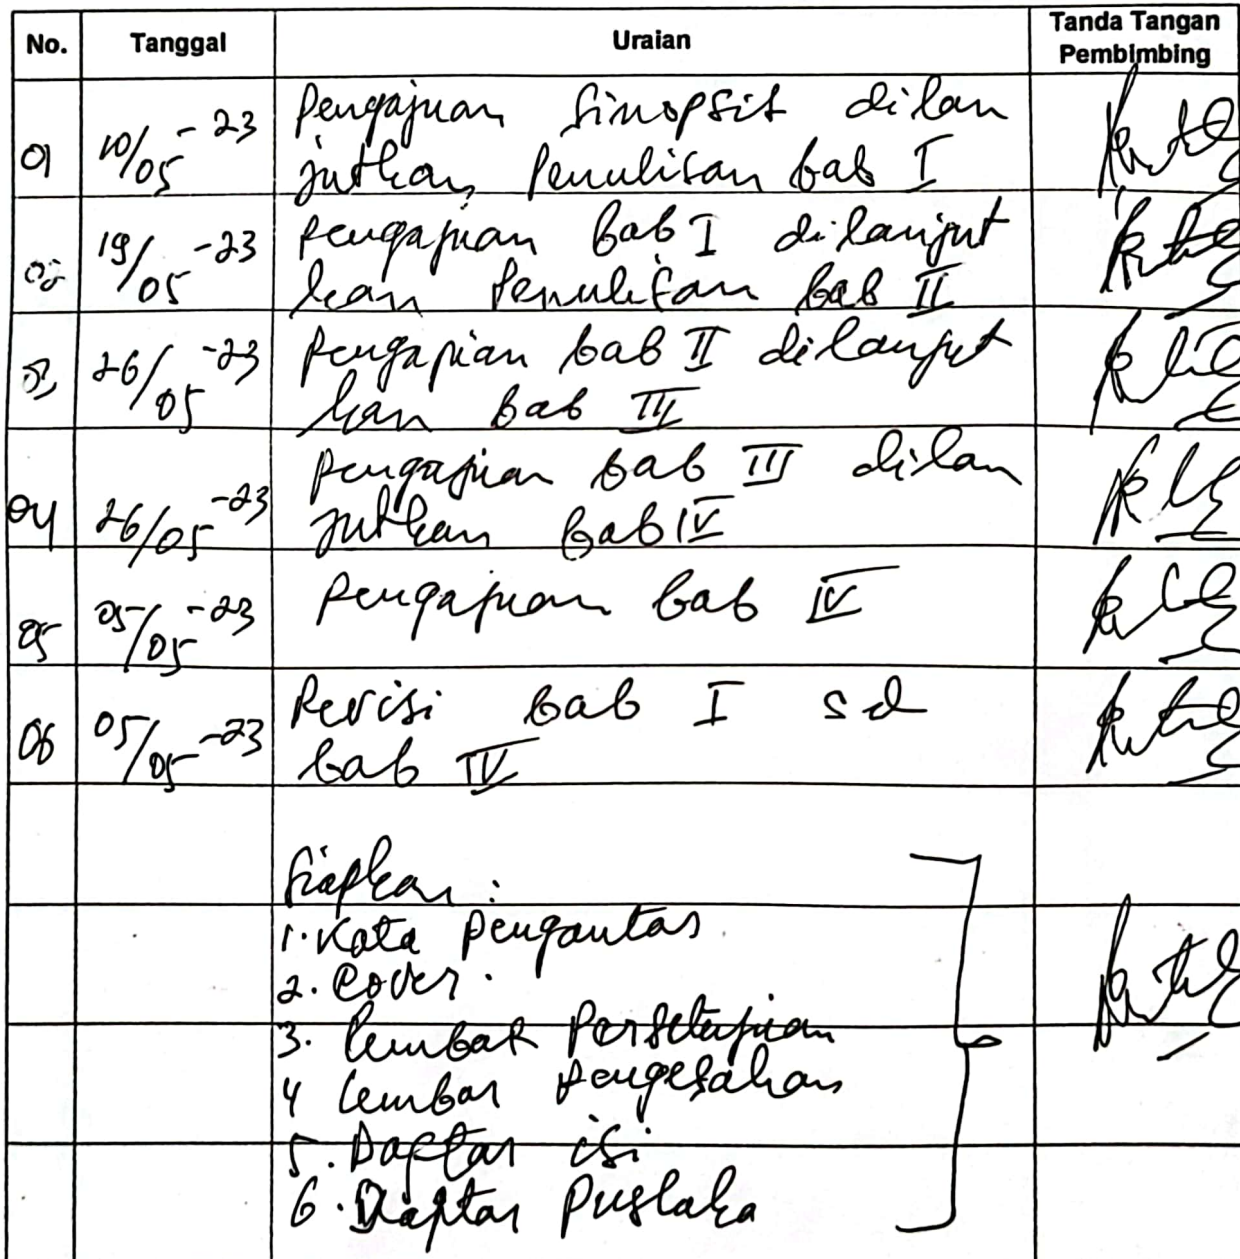 No. Tanggal Uraian Tanda Tangan
Pembimbing
01 10/05-23 Pengajuan Sinopsis dilan
jutkan Penulisan bab I
02 19/05-23 Pengajuan bab I dilanjut
kan Penulisan bab II
03 26/05-23 Pengajuan bab II dilanjut
kan bab III
04 26/05-23 Pengajuan bab III dilan
jutkan bab IV
05 05/05-23 Pengajuan bab IV
06 05/05-23 Revisi bab I sd
bab IV
Siapkan :
1. Kata Pengantar
2. Cover.
3. Lembar Persetujuan
4 Lembar Pengesahan
5. Daftar isi
6. Daftar Pustaka